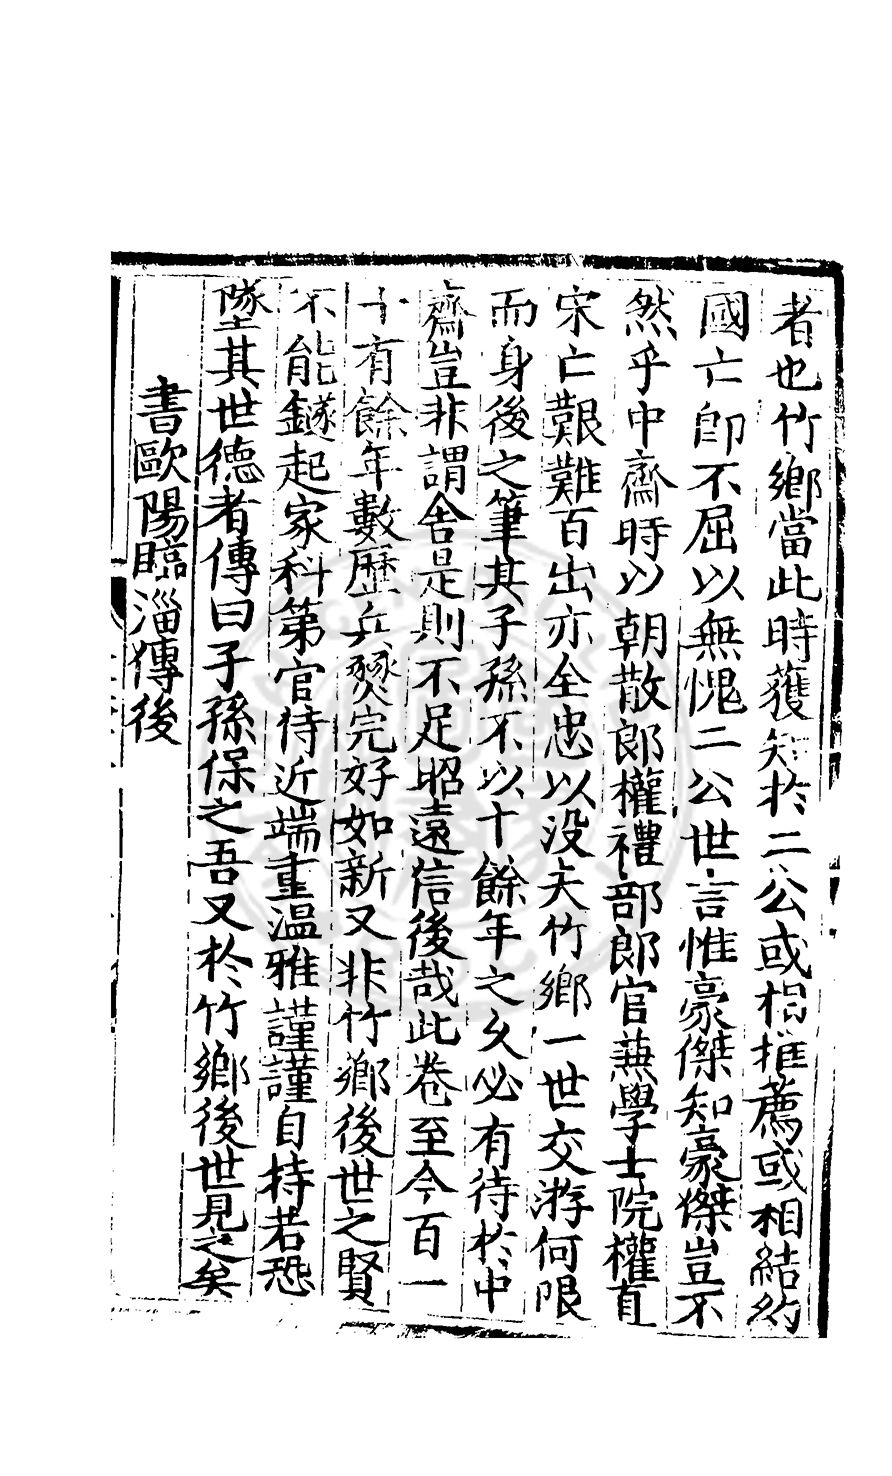 者也竹鄉當此時獲知於二公或相推薦或相結約
國亡卽不屈以無愧二公世言惟豪傑知豪傑豈不
然乎中齋時以朝散郎權禮部郎官蕪學士院權直
宋亡艱難百出亦全忠以没夫竹鄉一世交游何限
而身後之筆其子孫不以十餘年之久必有待於中
齋豈非謂舍是則不足昭遠信後哉此卷至今百一
十有餘年數歷兵燹完好如新又非竹鄉後世之賢
不能鐩起家科第官侍近端重温雅謹謹自持若恐
墜其世德者傳曰子孫保之吾又於竹鄉後世見之矣
書歐陽臨淄傳後